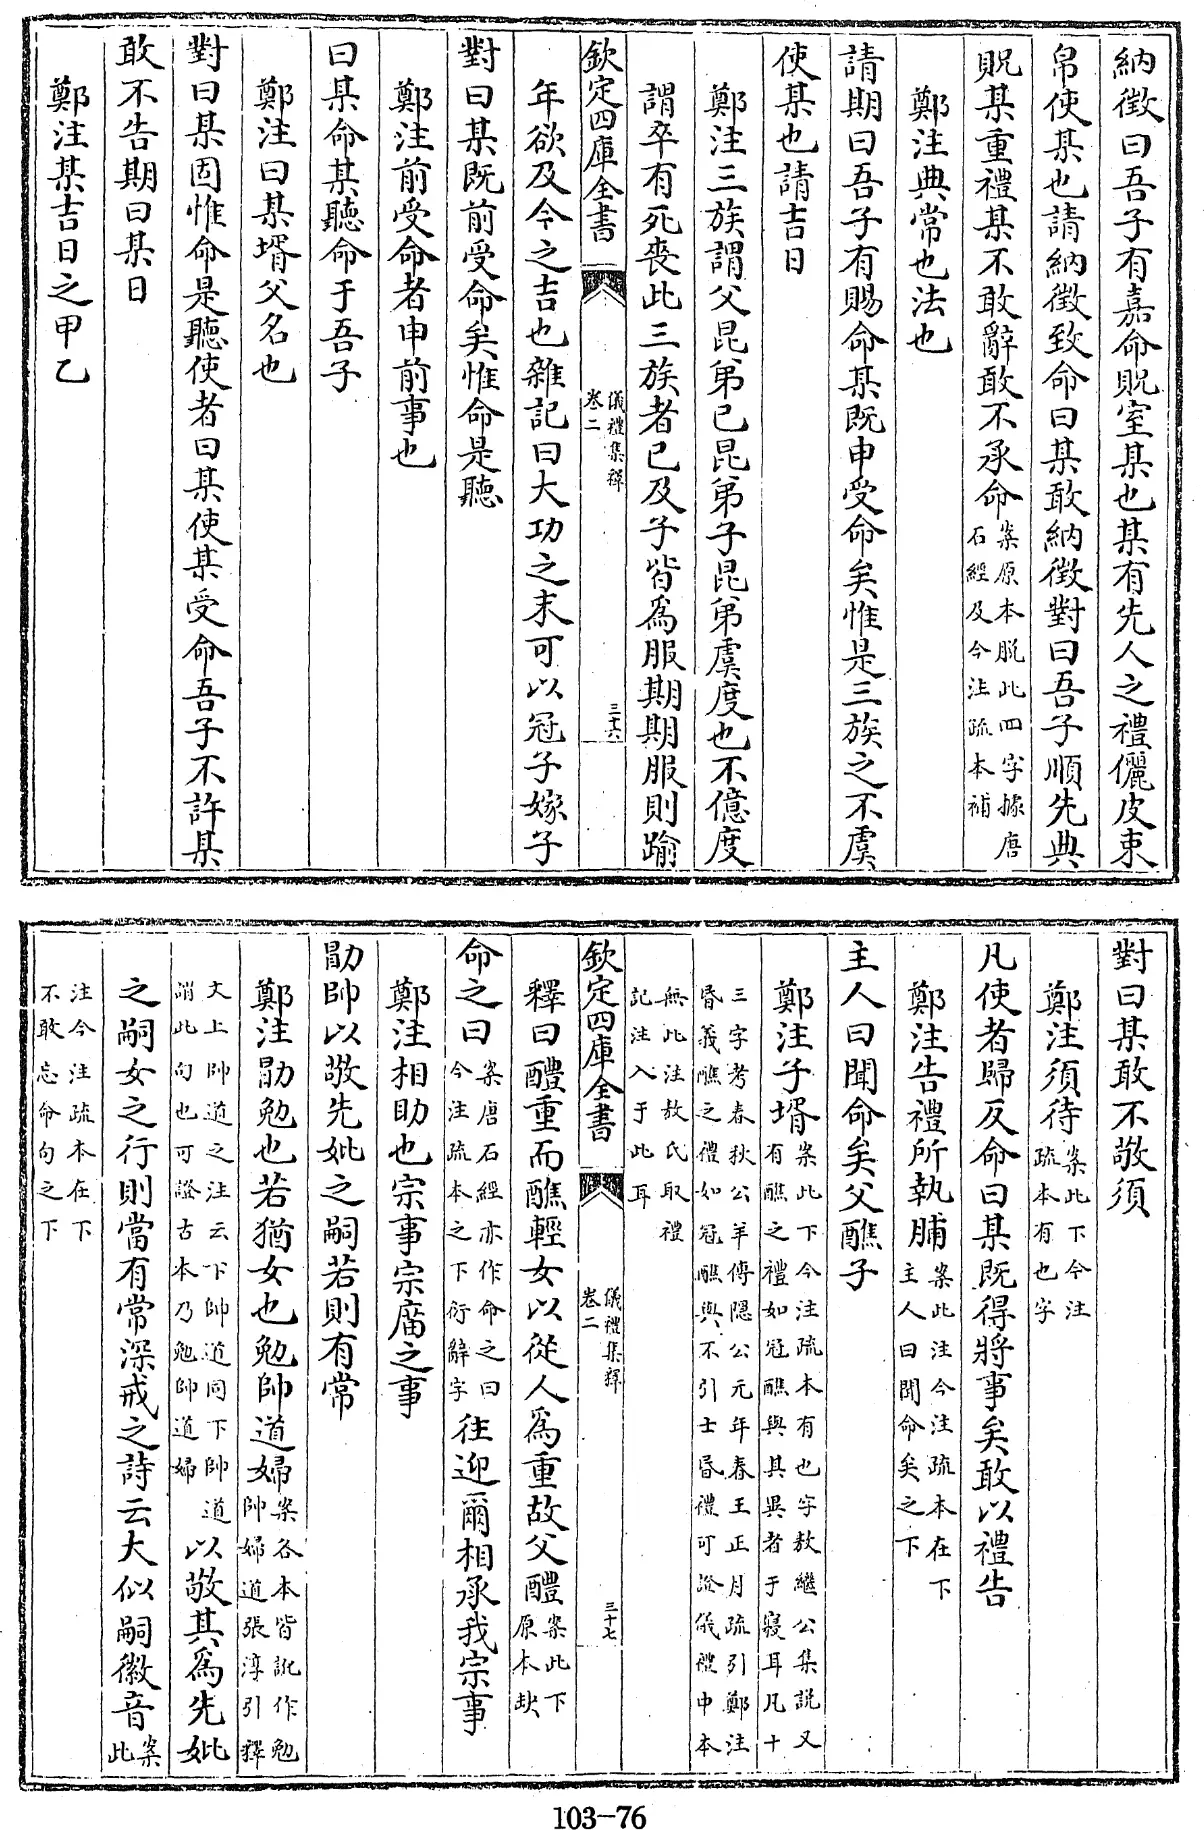 納徵曰吾子有嘉命貺室某也某有先人之禮儷皮束
帛使某也請納徵致命曰某敢納徵對曰吾子順先典
貺某重禮某不敢辭敢不承命案原本脫此四字據唐石經及今注疏本補
鄭注典常也法也
請期曰吾子有賜命某既申受命矣惟是三族之不虞
使某也請吉日
鄭注三族謂父昆弟已昆弟子昆弟虞度也不億度
謂卒有死喪此三族者已及子皆為服期期服則踰
欽定四庫全書
儀禮集釋
卷二
三十六
年欲及今之吉也雜記曰大功之末可以冠子嫁子
對曰某既前受命矣惟命是聽
鄭注前受命者申前事也
曰某命某聽命于吾子
鄭注曰某壻父名也
對曰某固惟命是聽使者曰某使某受命吾子不許某
敢不告期曰某日
鄭注某吉日之甲乙
對曰某敢不敬須
鄭注須待案此下今注疏本有也字
凡使者歸反命曰某既得將事矣敢以禮告
鄭注告禮所執脯案此注今注疏本在主人曰聞命矣之下下
主人曰聞命矣父醮子
鄭注子壻案此下今注疏本有也字敖繼公集説又有醮之禮如冠醮與其異者于寢耳凡十
三字考春秋公羊傳隱公元年春王正月疏引鄭注昏義醮之禮如冠醮與不引士昏禮可證儀禮中本
無此注敖氏取禮記注入于此耳
欽定四庫全書
儀禮集釋
卷二
三十七
釋曰醴重而醮輕女以從人為重故父醴案此下原本缺
命之曰案唐石經亦作命之曰今注疏本之下衍辭字往迎爾相承我宗事
鄭注相助也宗事宗廟之事
勖帥以敬先妣之嗣若則有常
鄭注勖勉也若猶女也勉帥道婦案各本皆訛作勉帥婦道張淳引釋
文上帥道之注云下帥道同下帥道謂此句也可證古本乃勉帥道婦以敬其為先妣
之嗣女之行則當有常深戒之詩云大姒嗣徽音案此
注今注疏本在下不敢忘命句之下
103-76